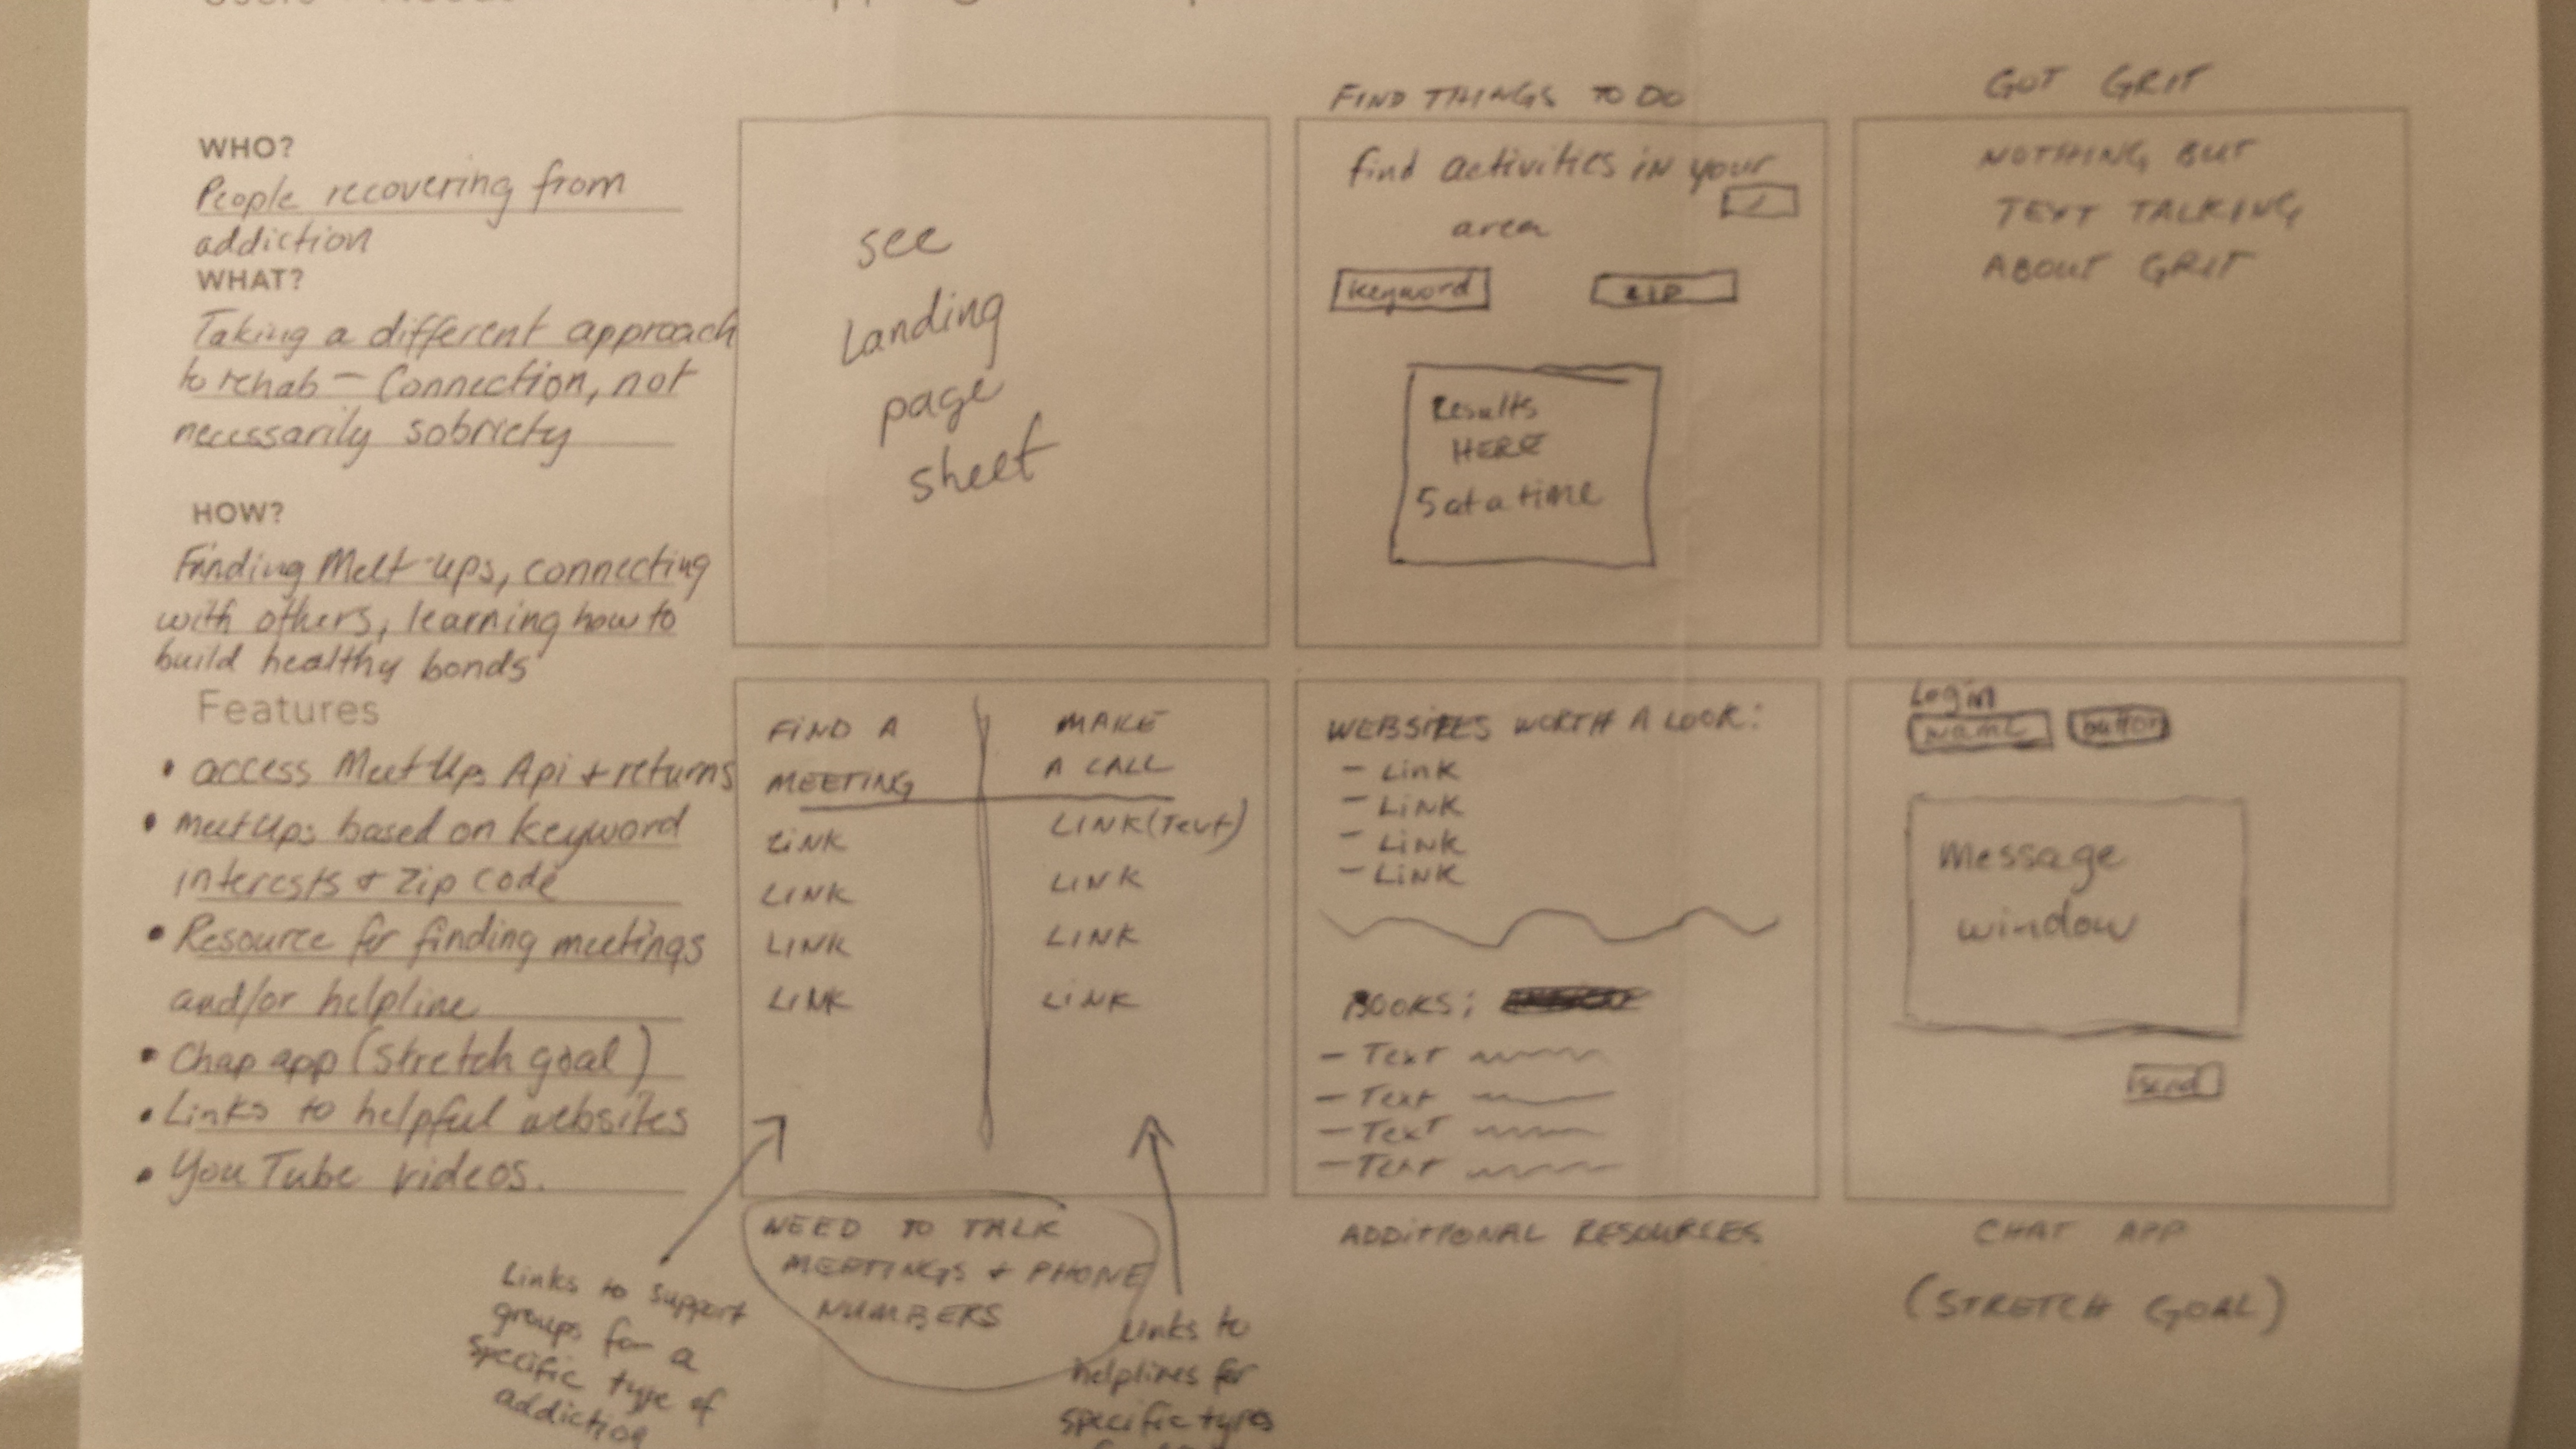 WHO?
People recovering from
addiction
WHAT?
Taking a different approach
to rehab – Connection, not
necessarily sobriety
HOW?
Finding Meet-ups, connecting
with others, learning how to
build healthy bonds
Features
• access MeetUps Api + returns
• MeetUps based on keyword
interests + zip code
• Resource for finding meetings
and/or helpline
• Chap app (stretch goal)
• Links to helpful websites
• YouTube videos.
see
landing
page
sheet
FIND THINGS TO DO
find activities in your
area
keyword
ZIP
Results
HERE
5 at a time
GOT GRIT
NOTHING BUT
TEXT TALKING
ABOUT GRIT
FIND A
MEETING
LINK
LINK
LINK
LINK
MAKE
A CALL
LINK (Text)
LINK
LINK
LINK
NEED TO TALK
MEETINGS + PHONE
NUMBERS
Links to support
groups for a
specific type of
addiction
Links to
helplines for
specific types
WEBSITES WORTH A LOOK:
– Link
– LINK
– LINK
– LINK
BOOKS:
– Text
– Text
– Text
– Text
ADDITIONAL RESOURCES
Login
NAME
button
Message
window
send
CHAT APP
(STRETCH GOAL)